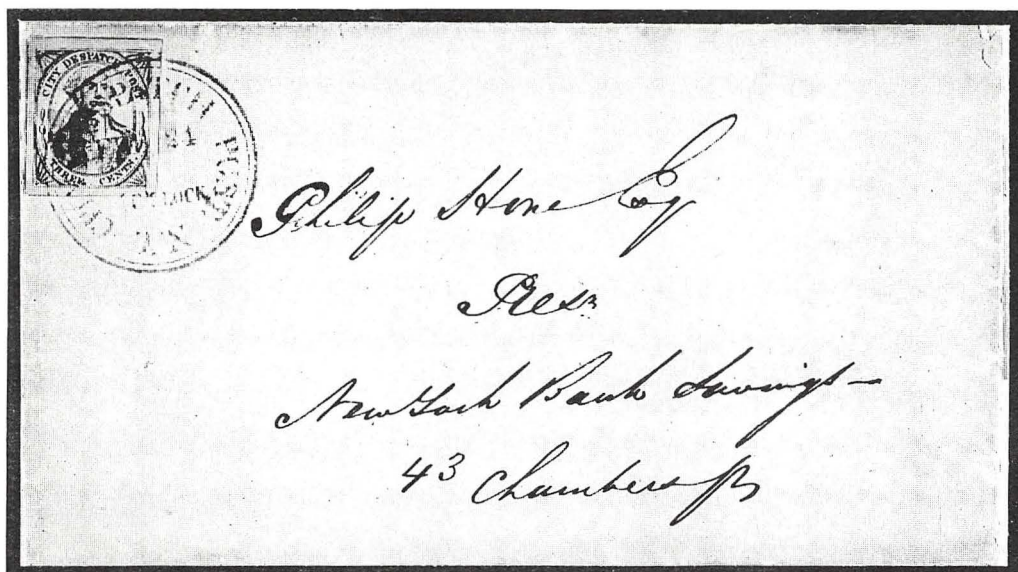 CITY DESPATCH POST
THREE CENTS.
CITY DESPATCH POST
O'CLOCK
N.Y.
Philip Hone Esq
Presᵗ
New York Bank Savings—
43 Chambers St